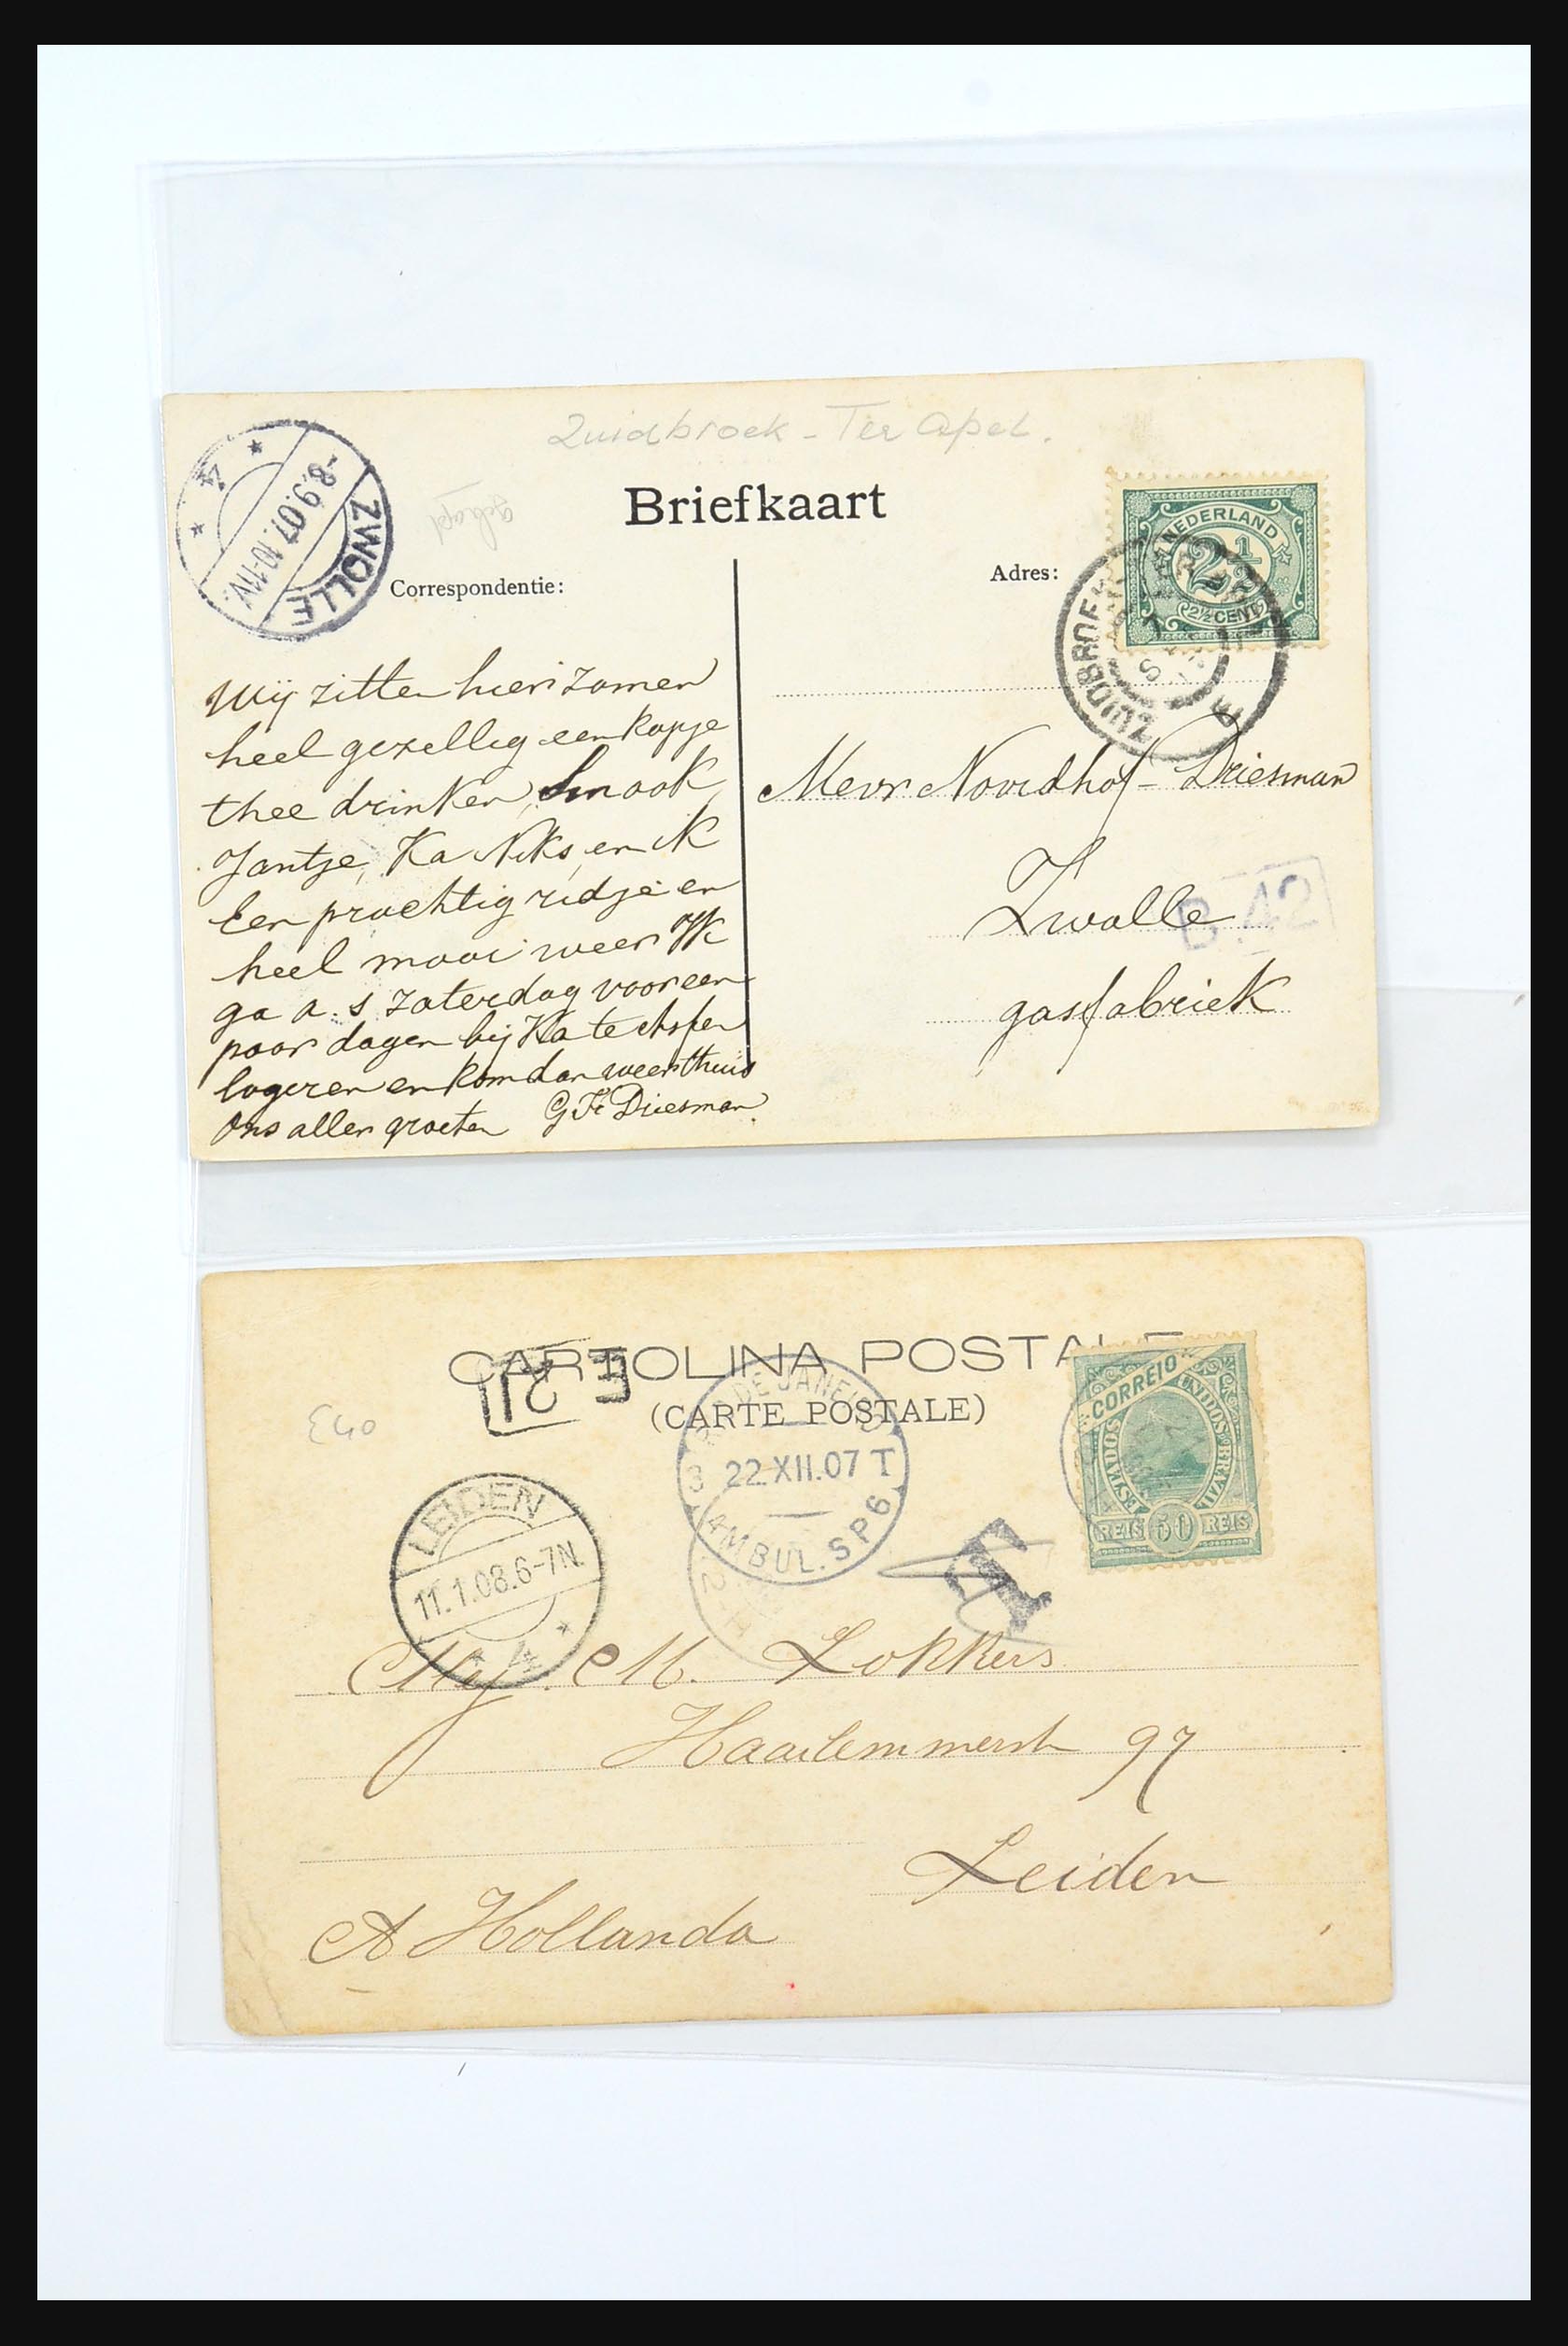 Zuidbroek - Ter Apel.
Briefkaart
NEDERLAND
2½
2½ CENT
ZWOLLE
-8.9.07.10-11V.
4
Correspondentie:
Adres:
ZUIDBROEK
Wij zitten hier zamen
heel gezellig een kopje
thee drinken, Snook
Jantje, Ka Niks, en ik
Een prachtig ridje en
heel mooi weer Ik
ga a. s zaterdag voor een
paar dagen bij Ka te
logeren en kom dan weer thuis
Ons aller groeten G Fr Driesman
Mevr Noordhof - Driesman
Zwolle
B.42
gasfabriek
CARTOLINA POSTALE
(CARTE POSTALE)
E 21
E40
RIO DE JANEIRO
3 22.XII.07 T
AMBUL. SP6
CORREIO
ESTADOS UNIDOS BRAZIL
REIS 50 REIS
T
LEIDEN
11.1.08.6-7N.
4
Mej. M. Lokkers
Haarlemmerstr 97
Leiden
A Hollanda